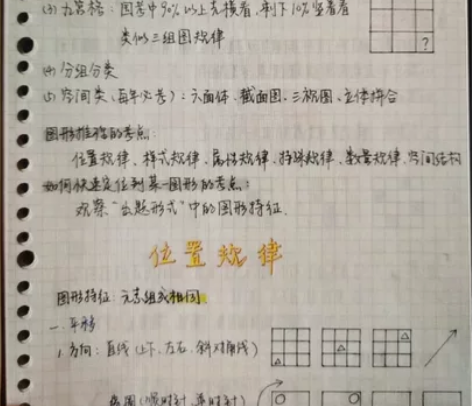 (3) 九宫格：国考中90%以上先横看，剩下10%竖着看
类似三组图规律
?
(4) 分组分类
(5) 空间类(每年必考)：六面体、截面图、三视图、立体拼合
图形推理的考点：
位置规律、样式规律、属性规律、特殊规律、数量规律、空间结构
如何快速定位到某一图形的考点：
观察“出题形式”中的图形特征.
位置规律
图形特征：元素组成相同
一. 平移
1. 方向：直线(上下、左右、斜对角线)
(顺时针、逆时针)